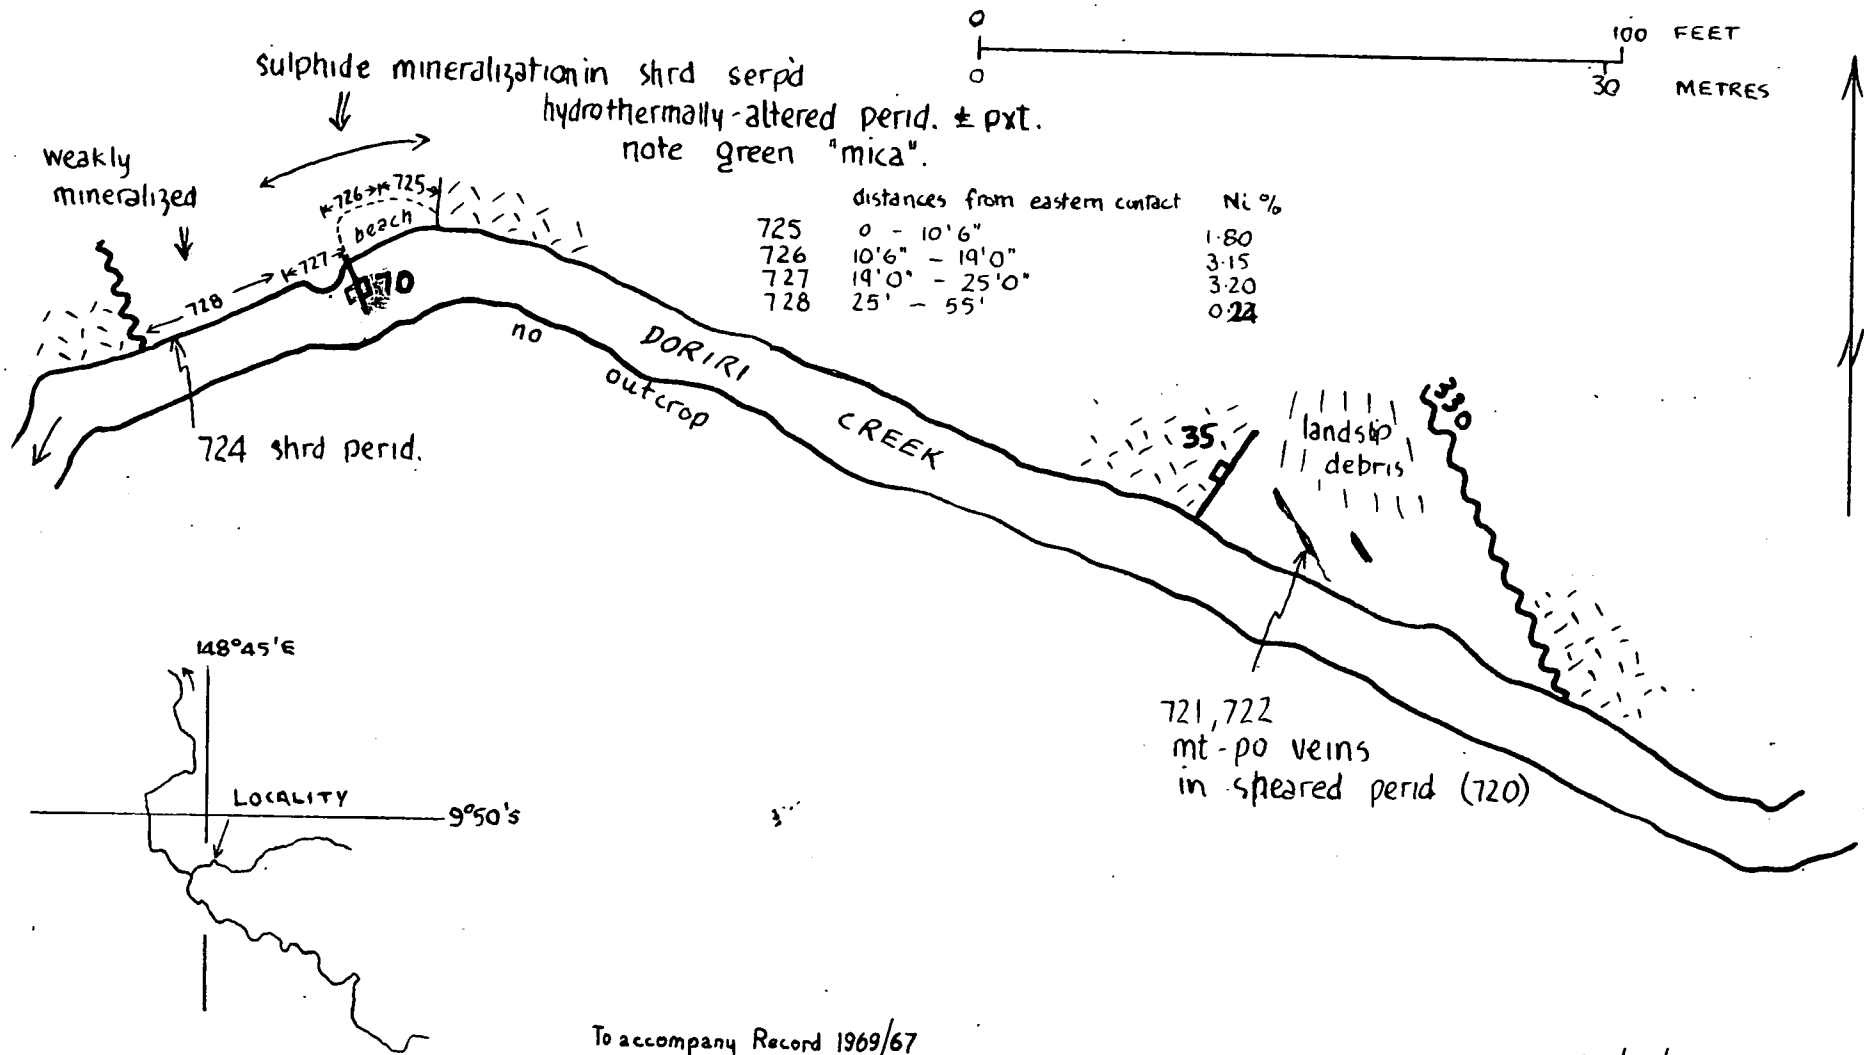 0 100 FEET
0 30 METRES
sulphide mineralization in shrd serp'd
hydrothermally-altered perid. ± pxt.
note green "mica".
weakly
mineralized
726 725
beach
727
728
70
distances from eastern contact Ni %
725 0 - 10'6" 1.80
726 10'6" - 19'0" 3.15
727 19'0" - 25'0" 3.20
728 25' - 55'
724 shrd perid.
no
outcrop
DORIRI
CREEK
35
landslip
debris
330
721, 722
mt-po veins
in sheared perid (720)
148°45'E
LOCALITY
9°50's
To accompany Record 1969/67